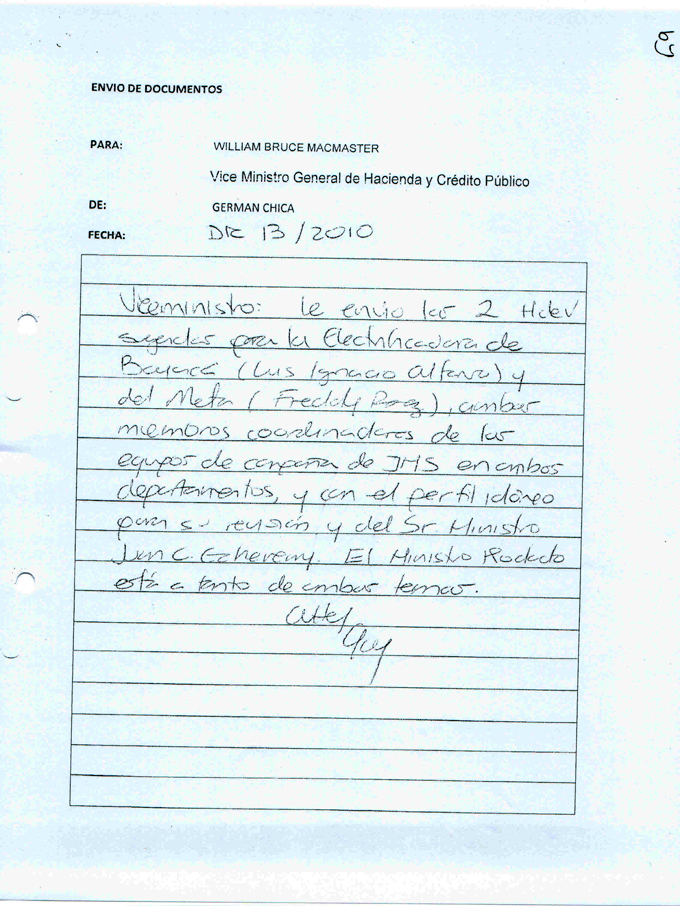 ENVIO DE DOCUMENTOS
PARA: WILLIAM BRUCE MACMASTER
Vice Ministro General de Hacienda y Crédito Público
DE: GERMAN CHICA
FECHA: DIC 13/2010
Viceministro: Le envio las 2 Hdev
sugeridas para la Electrificadora de
Boyacá (Luis Ignacio Alfonso) y
del Meta (Freddy), ambos
miembros coordinadores de los
equipos de campaña de JMS en ambos
departamentos, y con el perfil idóneo
para su revisión y del Sr. Ministro
Juan C. Echeverry. El Ministro Rodado
está a tanto de ambos temas.